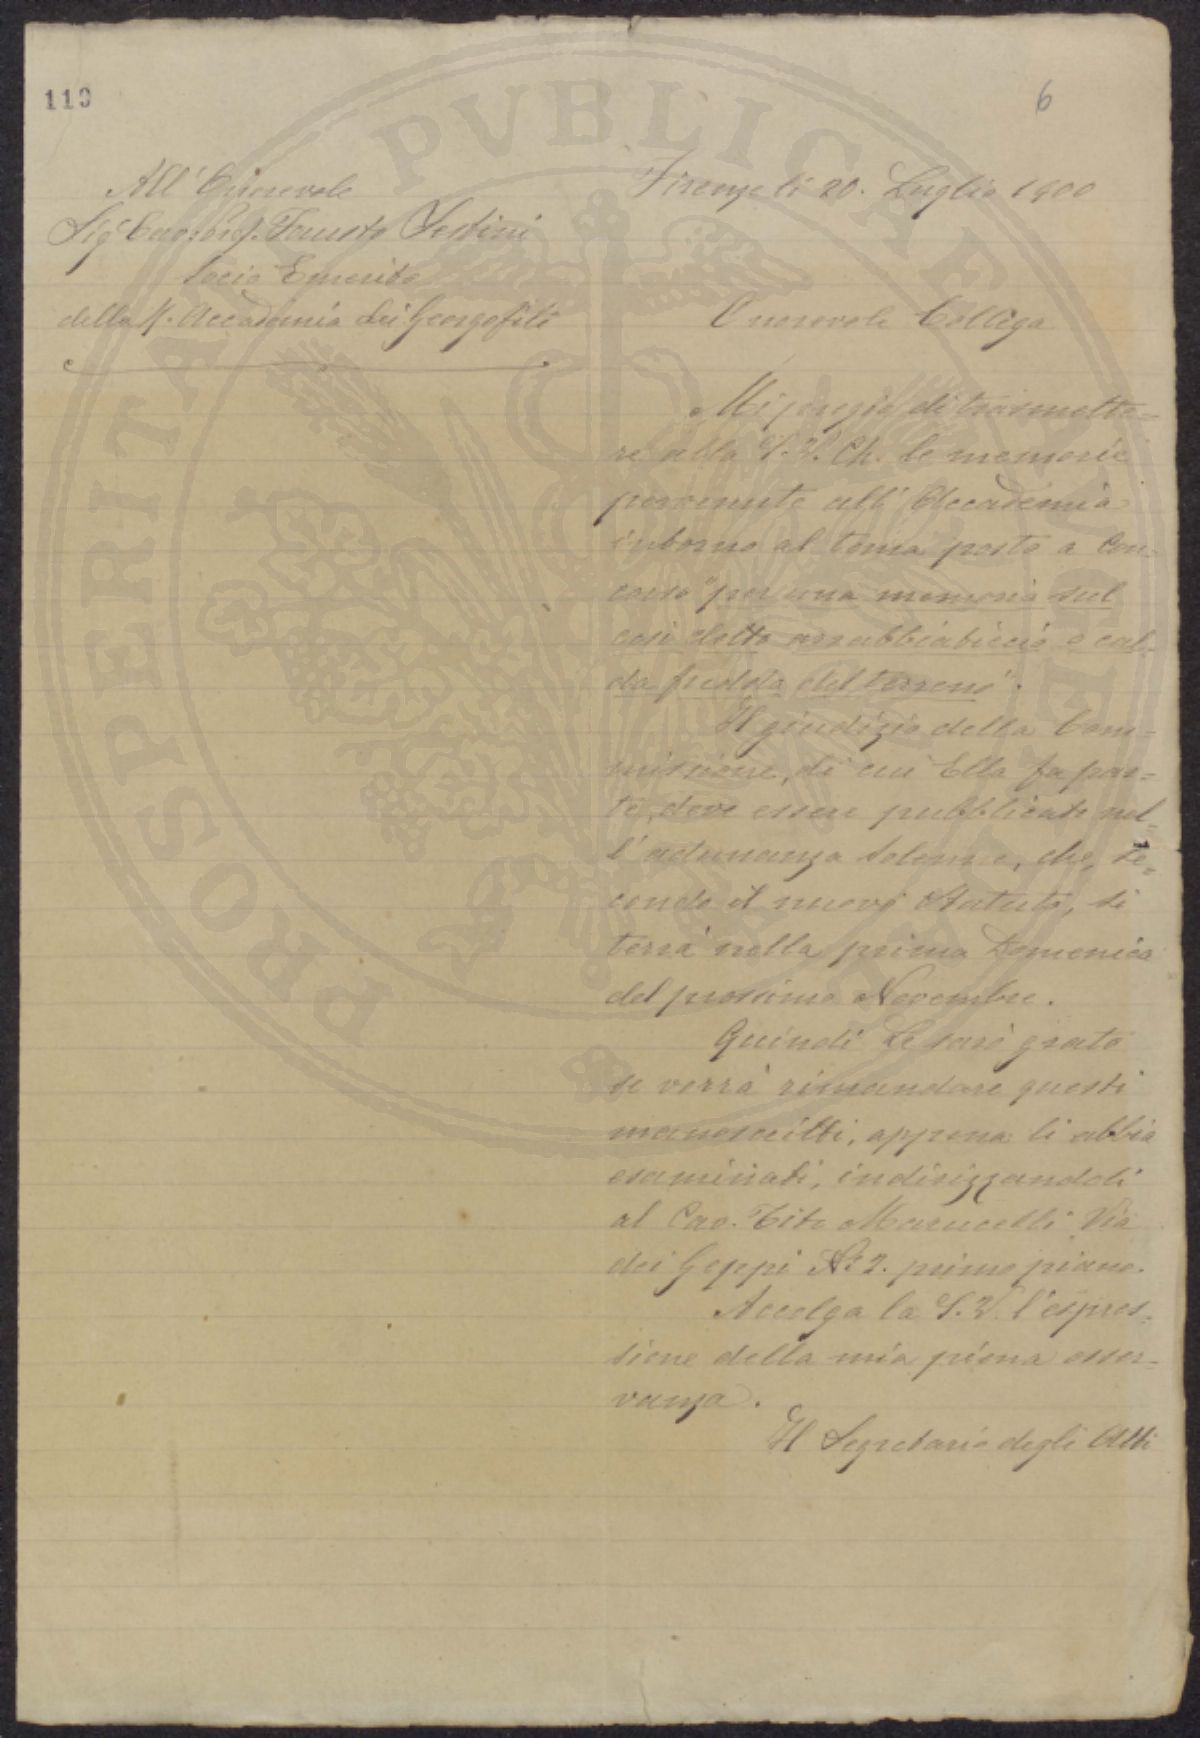 119
6
All' Onorevole
Sig. Cav. Prof. Fausto Sestini
Socio Emerito
della R. Accademia dei Georgofili
Firenze li 20. Luglio 1900
Onorevole Collega
Mi pregio di trasmette=
re alla S.V. Ch. le memorie
pervenute all' Accademia
intorno al tema posto a Con=
corso "per una memoria sul
così detto arrabbiaticcio o cal=
da fredda del terreno".
Il giudizio della Com=
missione, di cui Ella fa par=
te, deve essere pubblicato nel=
l'adunanza solenne, che, se=
condo il nuovo Statuto, si
terrà nella prima Domenica
del prossimo Novembre.
Quindi Le sarò grato
se verrà rimandare questi
manoscritti, appena li abbia
esaminati, indirizzandoli
al Cav. Tito Marucelli Via
dei Geppi N. 2. primo piano.
Accolga la S.V. l'espres=
sione della mia piena osser=
vanza.
Il Segretario degli Atti
PROSPERITATI PVBLICAE AVGENDAE